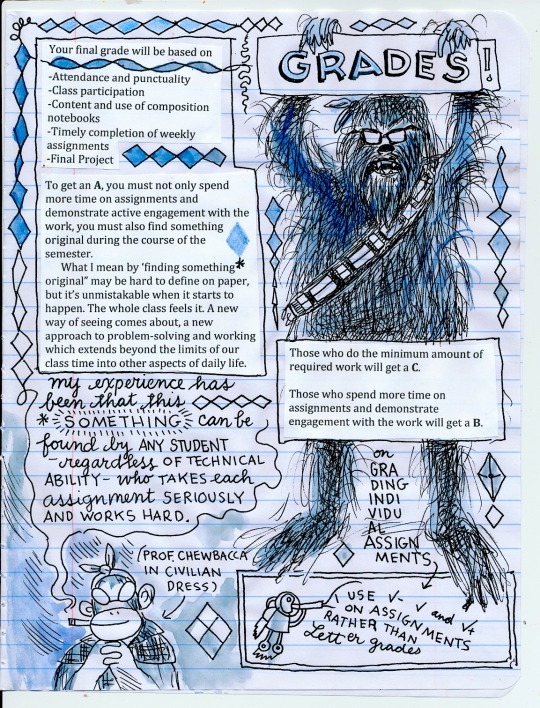 Your final grade will be based on
-Attendance and punctuality
-Class participation
-Content and use of composition
notebooks
-Timely completion of weekly
assignments
-Final Project
To get an A, you must not only spend
more time on assignments and
demonstrate active engagement with the
work, you must also find something
original during the course of the
semester.
What I mean by 'finding something*
original" may be hard to define on paper,
but it's unmistakable when it starts to
happen. The whole class feels it. A new
way of seeing comes about, a new
approach to problem-solving and working
which extends beyond the limits of our
class time into other aspects of daily life.
my experience has
been that this
* SOMETHING can be
found by ANY STUDENT
-regardless OF TECHNICAL
ABILITY- who TAKES each
assignment SERIOUSLY
AND WORKS HARD.
(PROF. CHEWBACCA
IN CIVILIAN
DRESS)
GRADES!
Those who do the minimum amount of
required work will get a C.
Those who spend more time on
assignments and demonstrate
engagement with the work will get a B.
on
GRA
DING
INDI
VIDU
AL
ASSIGN
MENTS
I USE √- √ and √+
ON ASSIGNMENTS
RATHER THAN
Letter grades